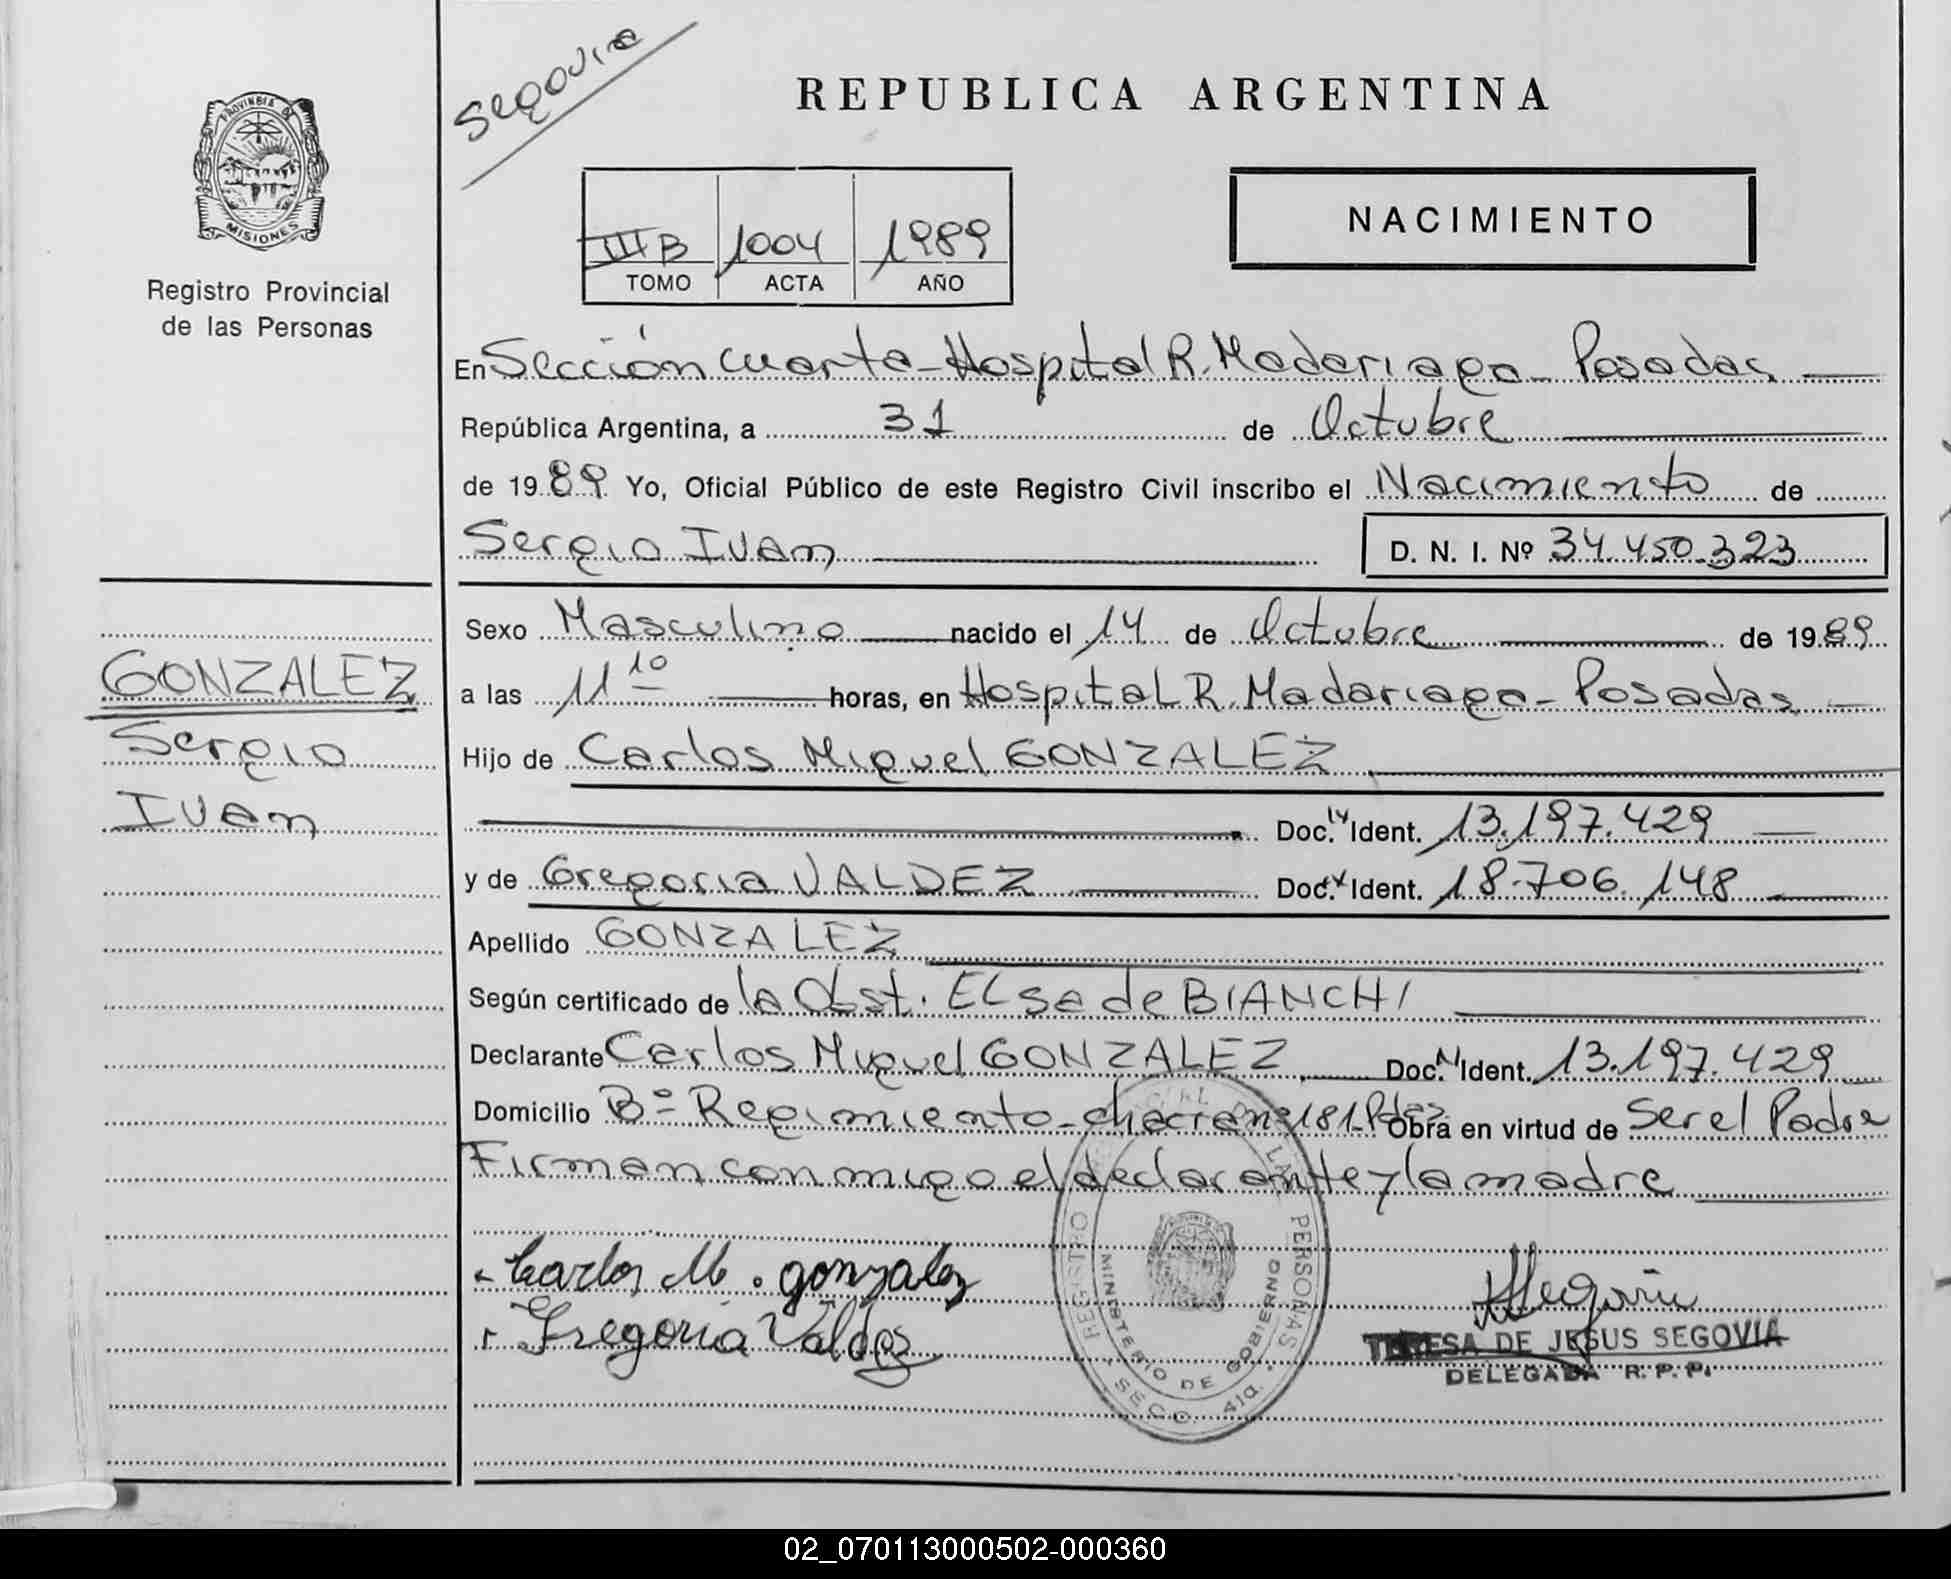 Segovia
REPUBLICA ARGENTINA
PROVINCIA DE
MISIONES
Registro Provincial
de las Personas
III B 1004 1989
TOMO ACTA AÑO
NACIMIENTO
En Sección Cuarta - Hospital R. Madariaga - Posadas
República Argentina, a 31 de Octubre
de 1989 Yo, Oficial Público de este Registro Civil inscribo el Nacimiento de
Sergio Ivan D. N. I. Nº 34.450.323
GONZALEZ
Sergio
Ivan
Sexo Masculino nacido el 14 de Octubre de 1989
a las 11 10 horas, en Hospital R. Madariaga - Posadas
Hijo de Carlos Miguel GONZALEZ
Doc. Ident. 13.197.429
y de Gregoria VALDEZ Doc. Ident. 18.706.148
Apellido GONZALEZ
Según certificado de la Obst. Elsa de BIANCHI
Declarante Carlos Miguel GONZALEZ Doc. Ident. 13.197.429
Domicilio Bº Regimiento - chacra nº 181 - Pdas Obra en virtud de Ser el Padre
Firman conmigo el declarante y la madre
Carlos M. gonzalez
Gregoria Valdez
REGISTRO PROVINCIAL DE LAS PERSONAS
MINISTERIO DE GOBIERNO
SECC. 4ta.
TERESA DE JESUS SEGOVIA
DELEGADA R. P. P.
02_070113000502-000360